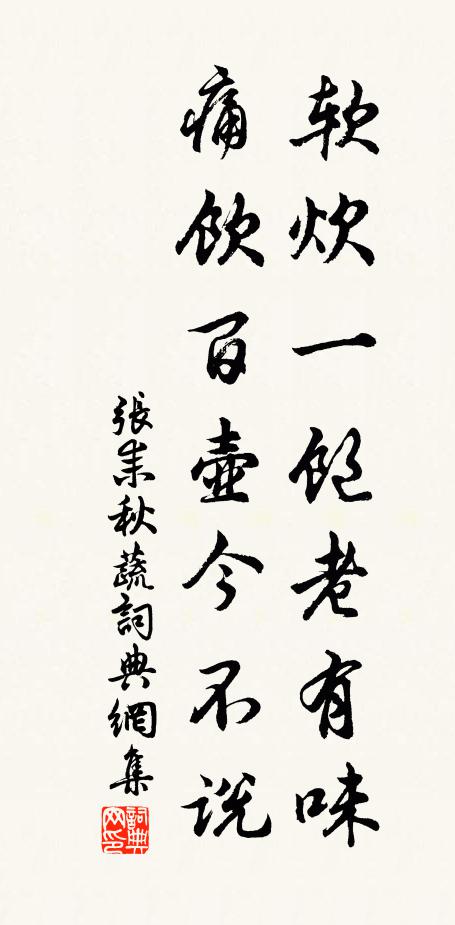 软炊一饱老有味
痛饮百壶今不说
張耒秋蔬詞典網集
詞典网印